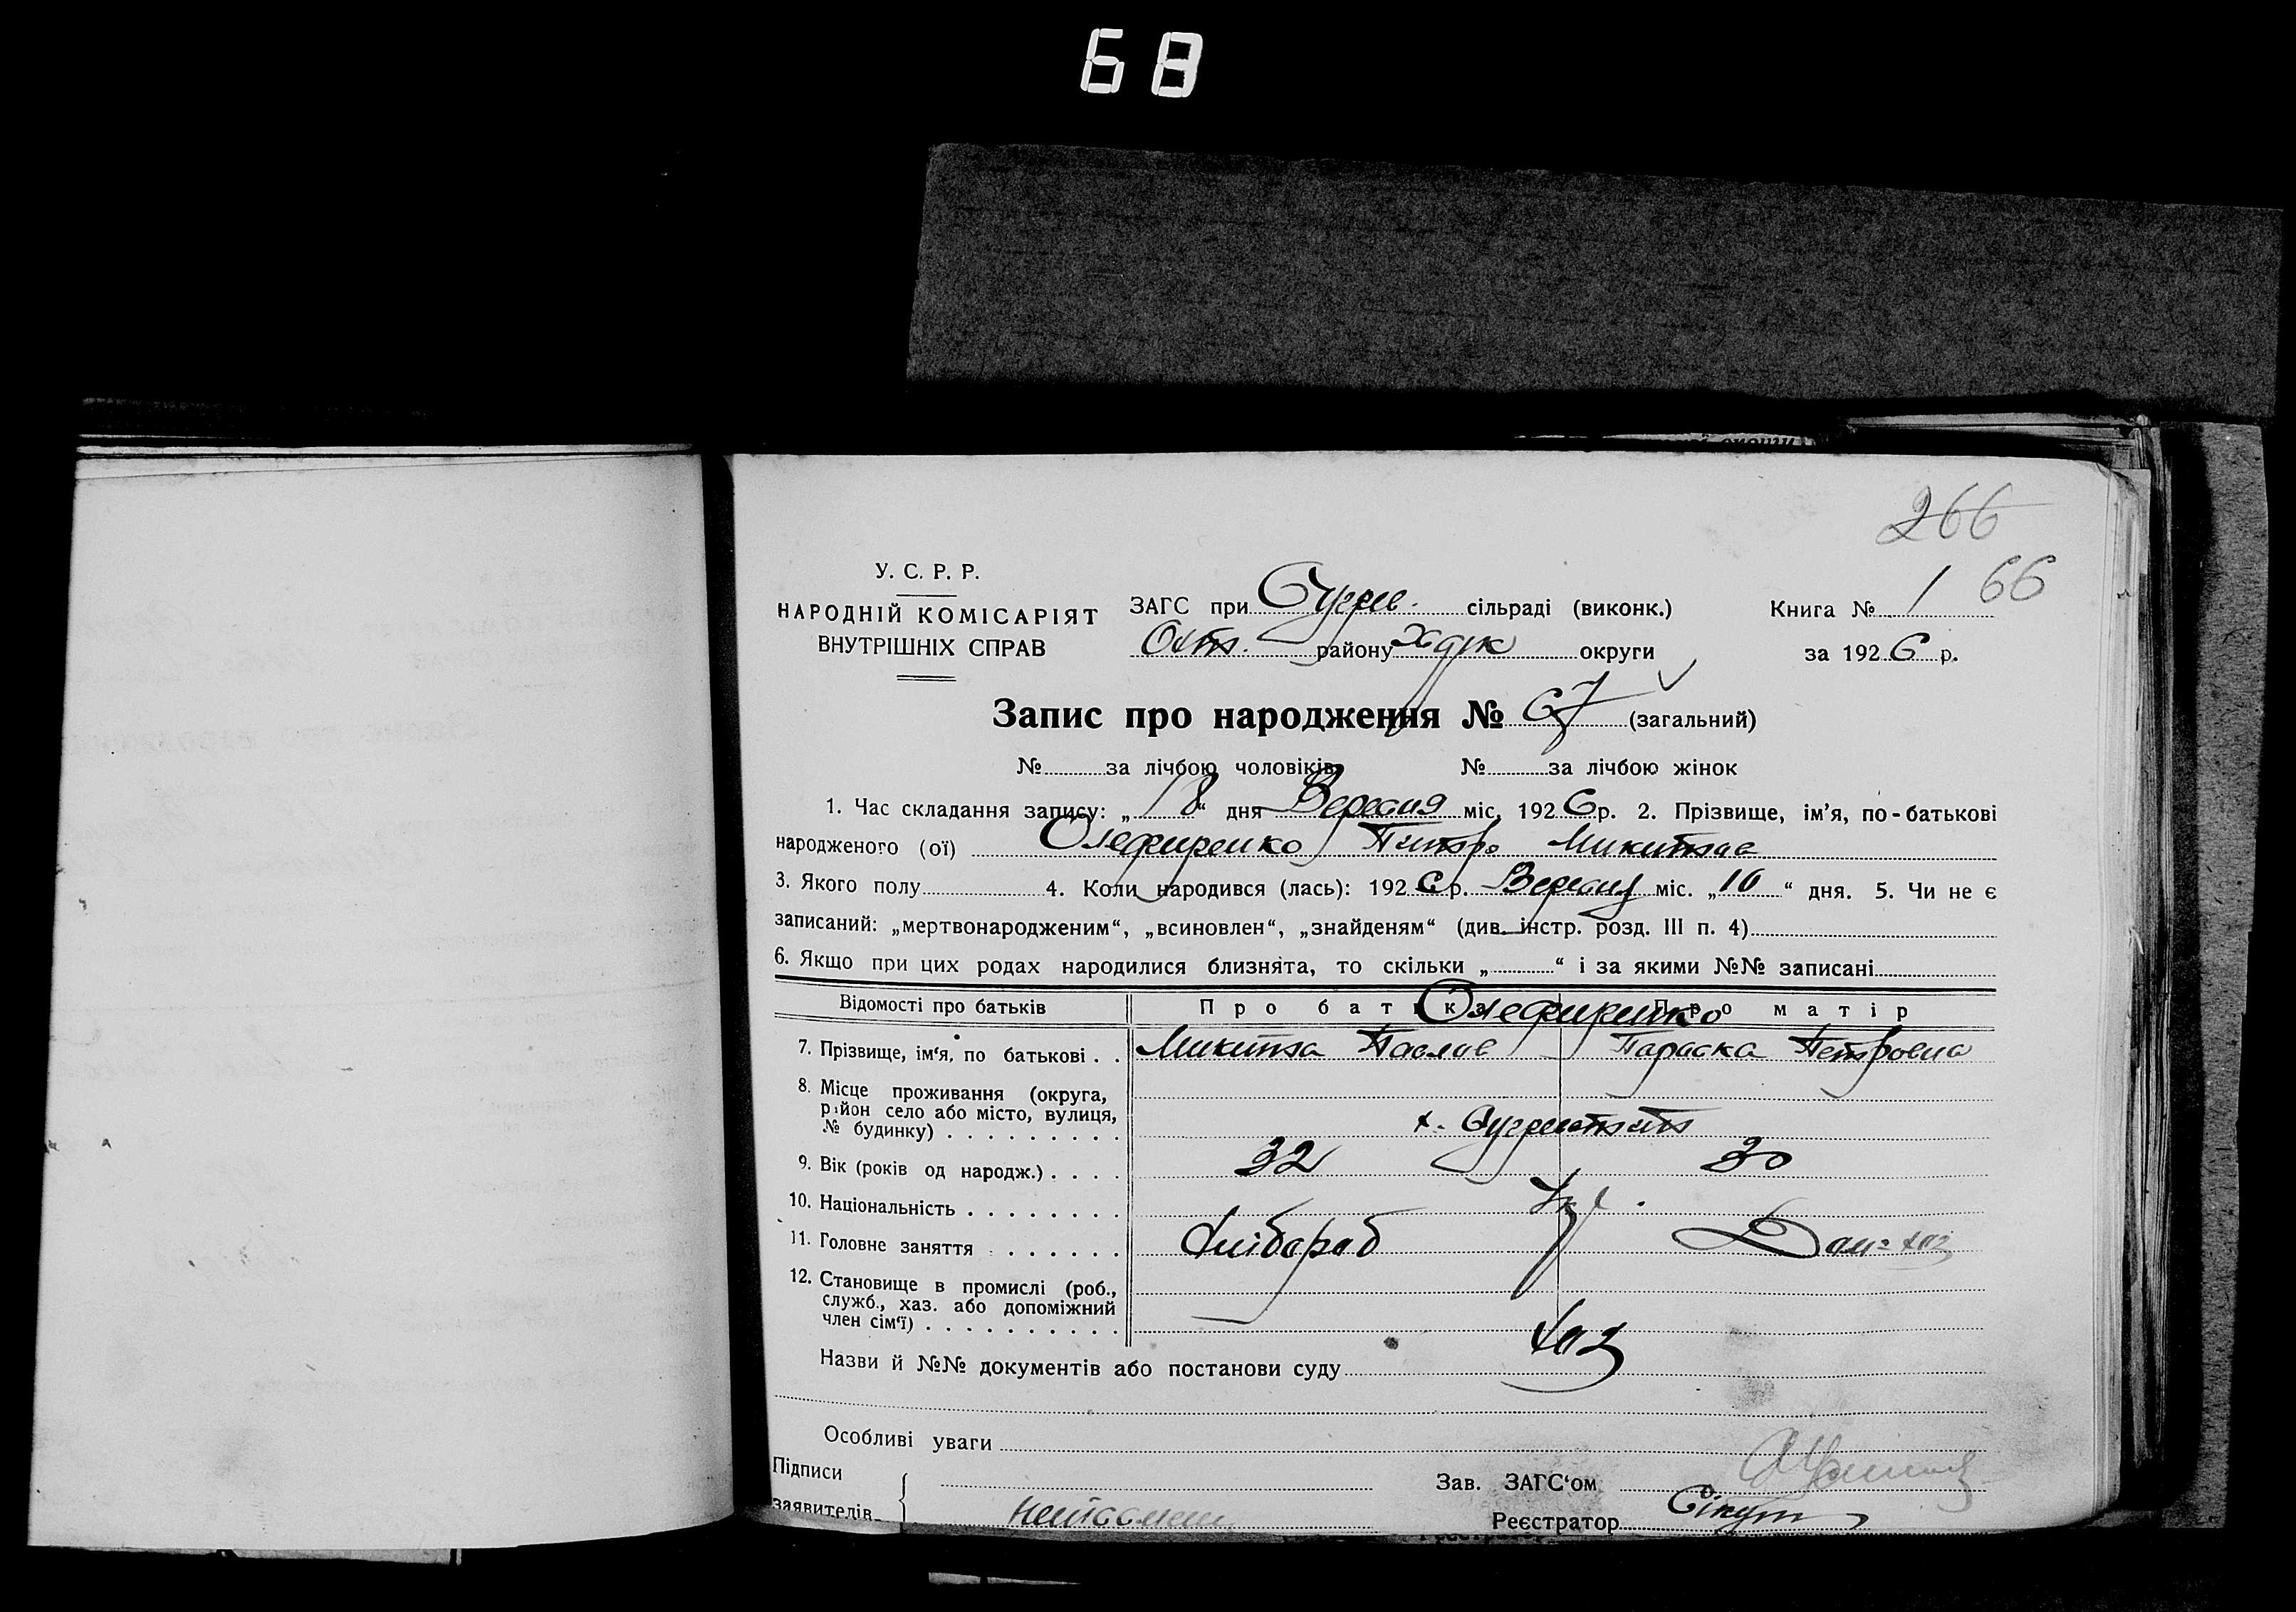 68
266
66
У. С. Р. Р.
НАРОДНІЙ КОМІСАРІЯТ
ВНУТРІШНІХ СПРАВ
ЗАГС при сільраді (виконк.)
району округи
Книга № 1
за 1926 р.
Запис про народження № 67 (загальний)
№ за лічбою чоловіків № за лічбою жінок
1. Час складання запису: „18“ дня Вересня міс. 1926 р. 2. Прізвище, ім’я, по-батькові
народженого (ої) Олефиренко Микитов
3. Якого полу 4. Коли народився (лась): 1926 р. Вересня міс. „10“ дня. 5. Чи не є
записаний: „мертвонародженим“, „всиновлен“, „знайденям“ (див. інстр. розд. III п. 4)
6. Якщо при цих родах народилися близнята, то скільки „ “ і за якими №№ записані
Відомості про батьків Про батька Про матір
Олефиренко
7. Прізвище, ім‘я, по батькові . . Микита Павлов Параска Петровна
8. Місце проживання (округа,
район село або місто, вулиця,
№ будинку) . . . . . . . . . х.
9. Вік (років од народж.) . . . . 32 30
10. Національність . . . . . . . . Укр.
11. Головне заняття . . . . . . . Хлібороб Дом=хаз
12. Становище в промислі (роб.,
служб., хаз. або допоміжний
член сім‘ї) . . . . . . . . . . Хаз
Назви й №№ документів або постанови суду
Особливі уваги
Підписи
заявителів
Зав. ЗАГС‘ом
Реєстратор